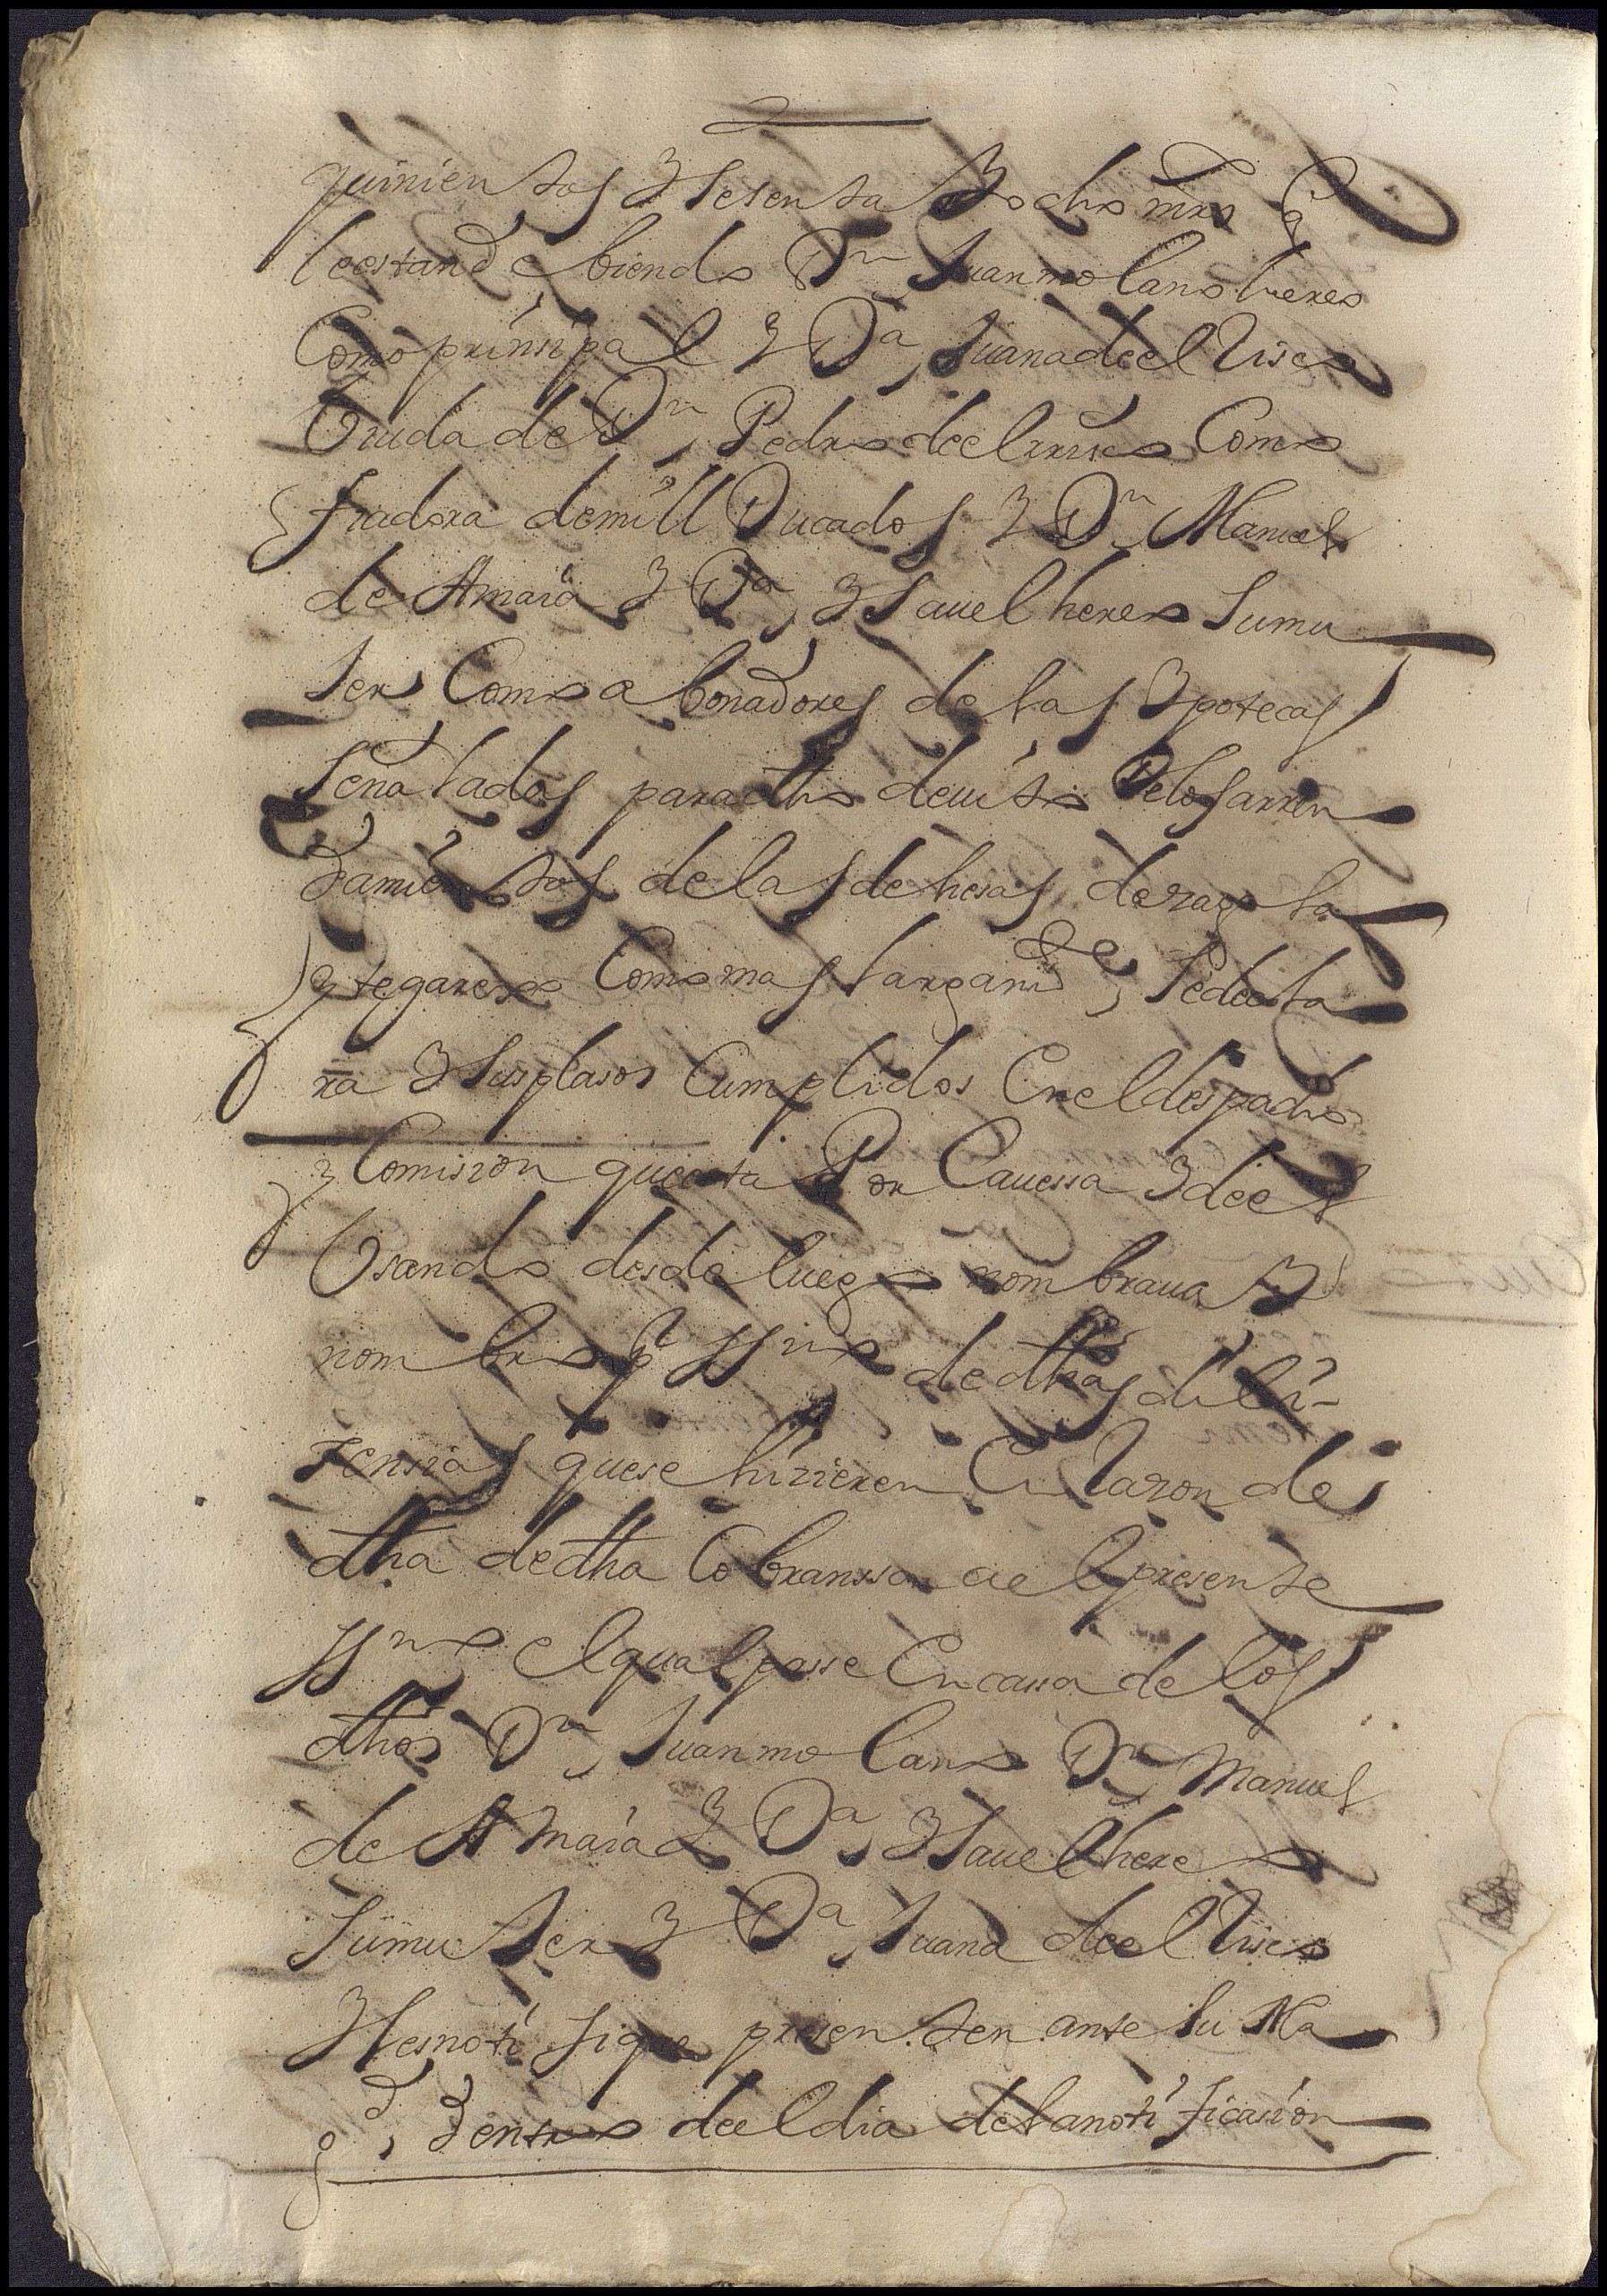 quinientos y sesenta y ocho mrs q
le estan debiendo Dn Juan molano heres
Como prinsipal y Da Juana de el Risco
Viuda de Dn Pedro de el rrisco Como
fiadora de mill Ducados y Dn Manuel
de Amaia y Da ysauel heres su mu
ser Como abonadores de las ypotecas
señaladas para dho deuito De los arren
damientos de las dehesas de
y tegarexo Como mas largamde se decla
ra y sus plasos Cumplidos En el despacho
y Comision que esta Por Cauessa y de el
Vsando desde luego nombraua y
nombro pr ssno de dhas dili-
sensias que se hizieren En Razon de
dha de dha Cobranssa a el presente
ssno el qual passe En cassa de los
dhos Dn Juan molano Dn Manuel
de Amaia y Da ysauel heres
su muser y Da Juana de el Risco
y les notifique presenten ante su Md
dentro de el dia de la notificasion